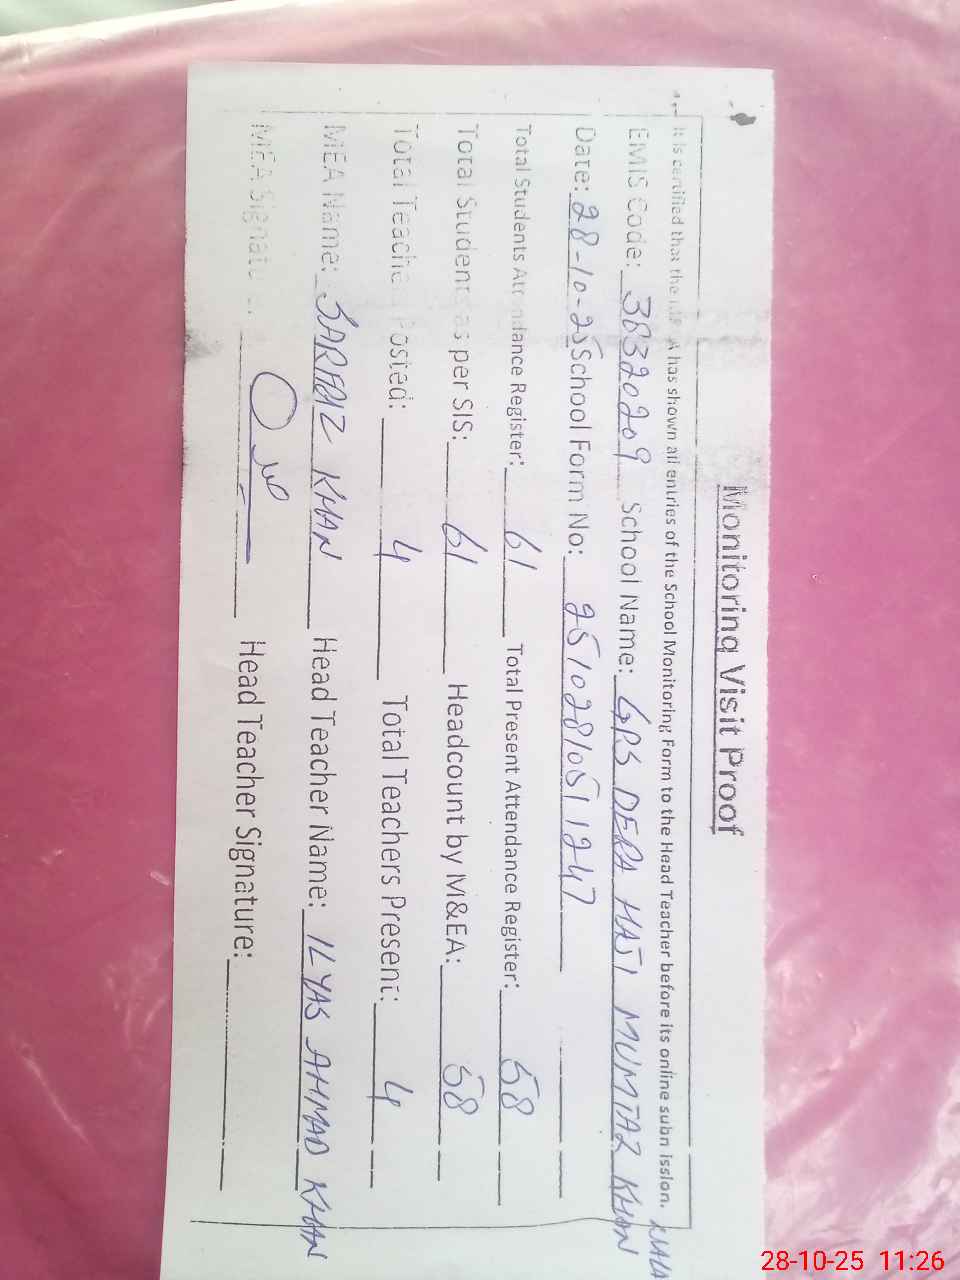 Monitoring Visit Proof
It is certified that the has shown all entries of the School Monitoring Form to the Head Teacher before its online submission.
EMIS Code: 38320209 School Name: GPS DERA HAJI MUMTAZ KHAN
Date: 28-10-25 School Form No: 2510281051247
Total Students Attendance Register: 61 Total Present Attendance Register: 58
Total Students as per SIS: 61 Headcount by M&EA: 58
Total Teachers Posted: 4 Total Teachers Present: 4
MEA Name: SARFRAZ KHAN Head Teacher Name: ILYAS AHMAD KHAN
MEA Signature: Head Teacher Signature:
28-10-25 11:26